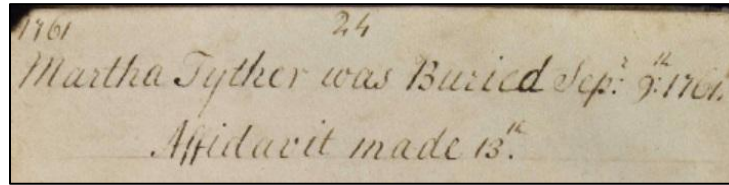 1761 24
Martha Tyther was Buried Sepr. 9th: 1761.
Affidavit made 13th.